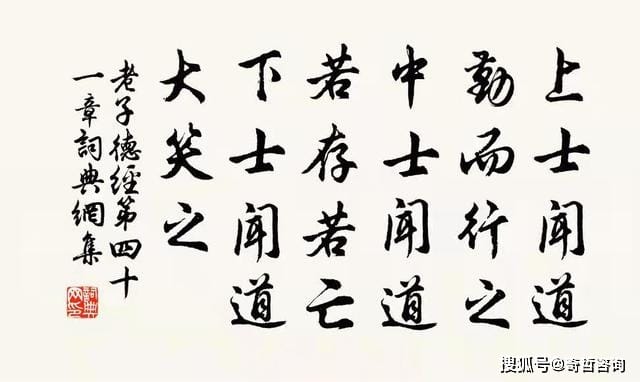 上士聞道
勤而行之
中士聞道
若存若亡
下士聞道
大笑之
老子德經第四十
一章詞典網集
詞典
网印
搜狐号@奇哲咨询